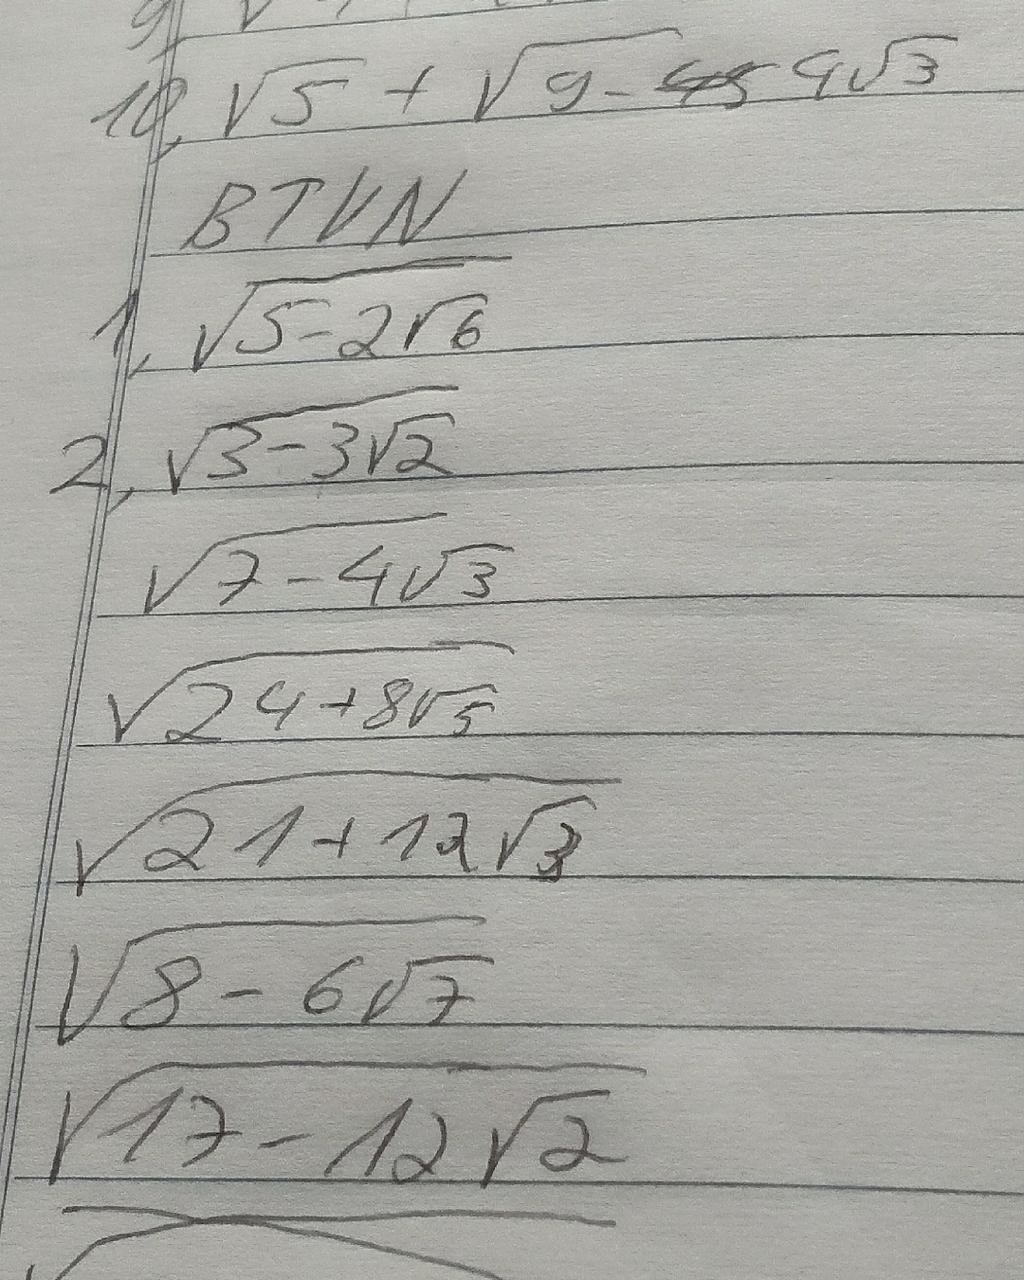 10, √5 + √9 - 4√3
BTVN
1, √5-2√6
2, √3-3√2
√7-4√3
√24+8√5
√21+12√3
√8-6√7
√17-12√2